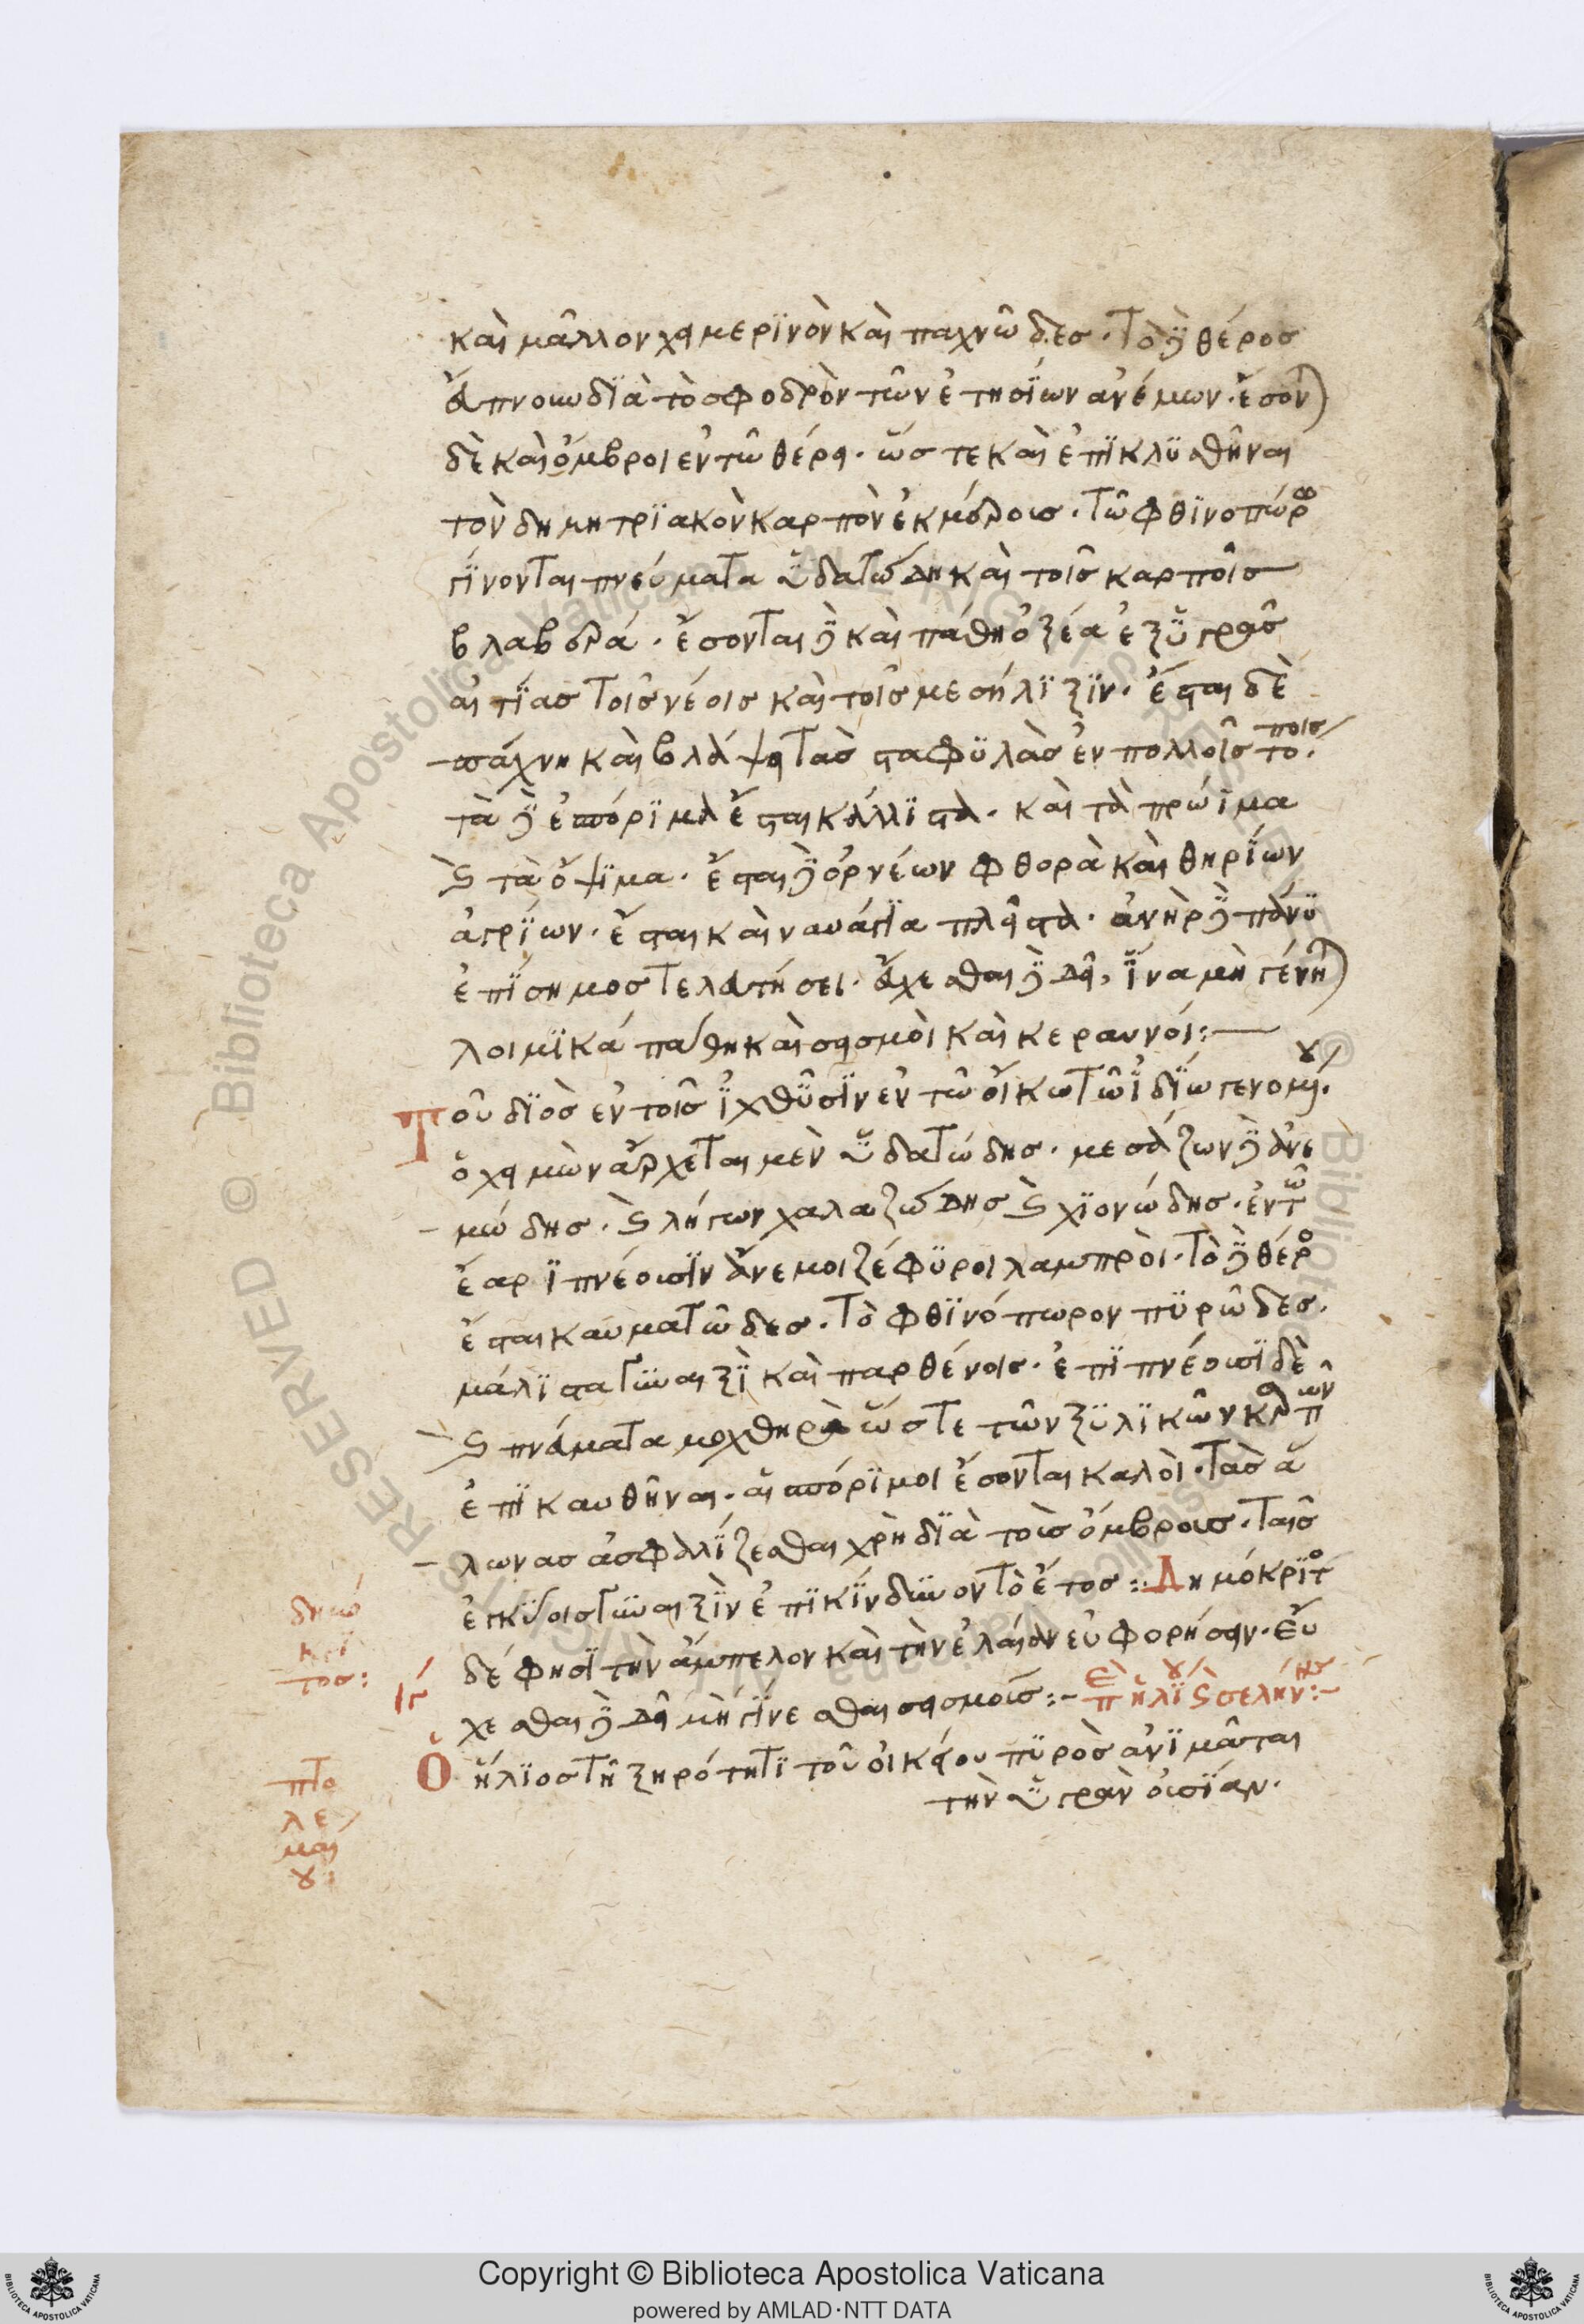 καὶ μᾶλλον χειμερϊνὸν καὶ παχνῶδες· Τὸ δὲ θέρος
ἄπνουν δϊὰ τὸ σφοδρὸν τῶν ἐτησΐων ἀνέμων· ἔσονται
δὲ καὶ ὄμβροι ἐν τῶ θέρει· ὥστε καὶ ἐπϊκλϋσθῆναι
τὸν δημητρϊακὸν καρπὸν ἐκ μέρους· Τῶ φθϊνοπώρω
γΐνονται πνεύματα ϋδατώδη καὶ τοῖς καρποῖς
βλαβερά· ἔσονται δὲ καὶ πάθη ὀξέα ἐξ ϋγρᾶς
αἰτΐας τοῖς νέοις καὶ τοῖς μεσήλϊξϊν· ἔσται δὲ
πάχνη καὶ βλάψει τὰς σταφϋλὰς ἐν πολλοῖς τόποις
τὰ δὲ σπόρϊμα ἔσται κάλλϊστα· καὶ τὰ πρώϊμα
καὶ τὰ ὄψϊμα· ἔσται δὲ ὀρνέων φθορὰ καὶ θηρΐων
ἀγρΐων· ἔσται καὶ ναυάγΐα πλεῖστα· ἀνὴρ δὲ πάνϋ
ἐπΐσημος τελευτήσει· εὔχεσθαι δὲ δεῖ, ἵνα μὴ γένηται
λοιμϊκά πάθη καὶ σεισμοὶ καὶ κεραυνοί:—
Τοῦ δϊὸς ἐν τοῖς ϊχθῦσϊν ἐν τῶ οἴκω τῶ ϊδΐω γενομένου
ὁ χειμὼν ἄρχεται μὲν ϋδατώδης· μεσάζων δὲ ἀνε
μώδης· καὶ λήγων χαλαζώδης καὶ χϊονώδης· ἐν τῶ
ἔαρϊ πνέουσϊν ἄνεμοι ζέφϋροι λαμπροὶ· Τὸ δὲ θέρος
ἔσται καυματῶδες· Τὸ φθϊνόπωρον πϋρῶδες·
μάλϊστα γϋναιξὶ καὶ παρθένοις· ἐπϊπνέουσϊ δὲ
καὶ πνεύματα μοχθηρὰ ὥστε τῶν ξϋλϊκῶν καρπῶν
ἐπϊκαυθῆναι· αἱ σπόρϊμοι ἔσονται καλοὶ· Τὰς ἅ
λωνας ἀσφαλΐζεσθαι χρὴ δϊὰ τοὺς ὄμβρους· Ταῖς
ἐγκΰοις γϋναιξϊν ἐπϊκΐνδϋνον τὸ ἔτος:: Δημόκρϊτος
δέ φησϊ τὴν ἄμπελον καὶ τὴν ἐλαίαν εὐφορήσειν· εὔ
χεσθαι δὲ δεῖ μὴ γΐνεσθαι σεισμοῖς:- Ἐπὶ ἡλΐου καὶ σελήνης:-
Ὁ ἥλϊος τῆ ξηρότητϊ τοῦ οἰκείου πϋρὸς ἀνϊμᾶται
τὴν ϋγρὰν οὐσΐαν·
δημό
κρϊ
τος:
ιγ
πτο
λε
μαί
ου:
Copyright © Biblioteca Apostolica Vaticana
powered by AMLAD·NTT DATA